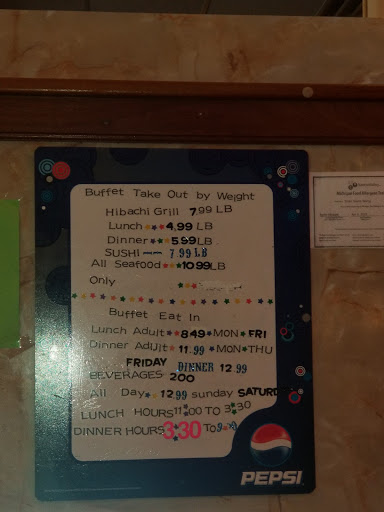 Buffet Take Out by Weight
Hibachi Grill 7.99 LB
Lunch 4,99 LB
Dinner 5.99 LB
SUSHI 7.99 LB
All Seafood 10.99 LB
Only
Buffet Eat In
Lunch Adult 849 MON FRI
Dinner Adljit 11.99 MON THU
FRIDAY DINNER 12.99
BEVERAGES 200
All Day 12.99 sunday SATURD
LUNCH HOURS 11:00 TO 3:30
DINNER HOURS 3:30 TO
PEPSI